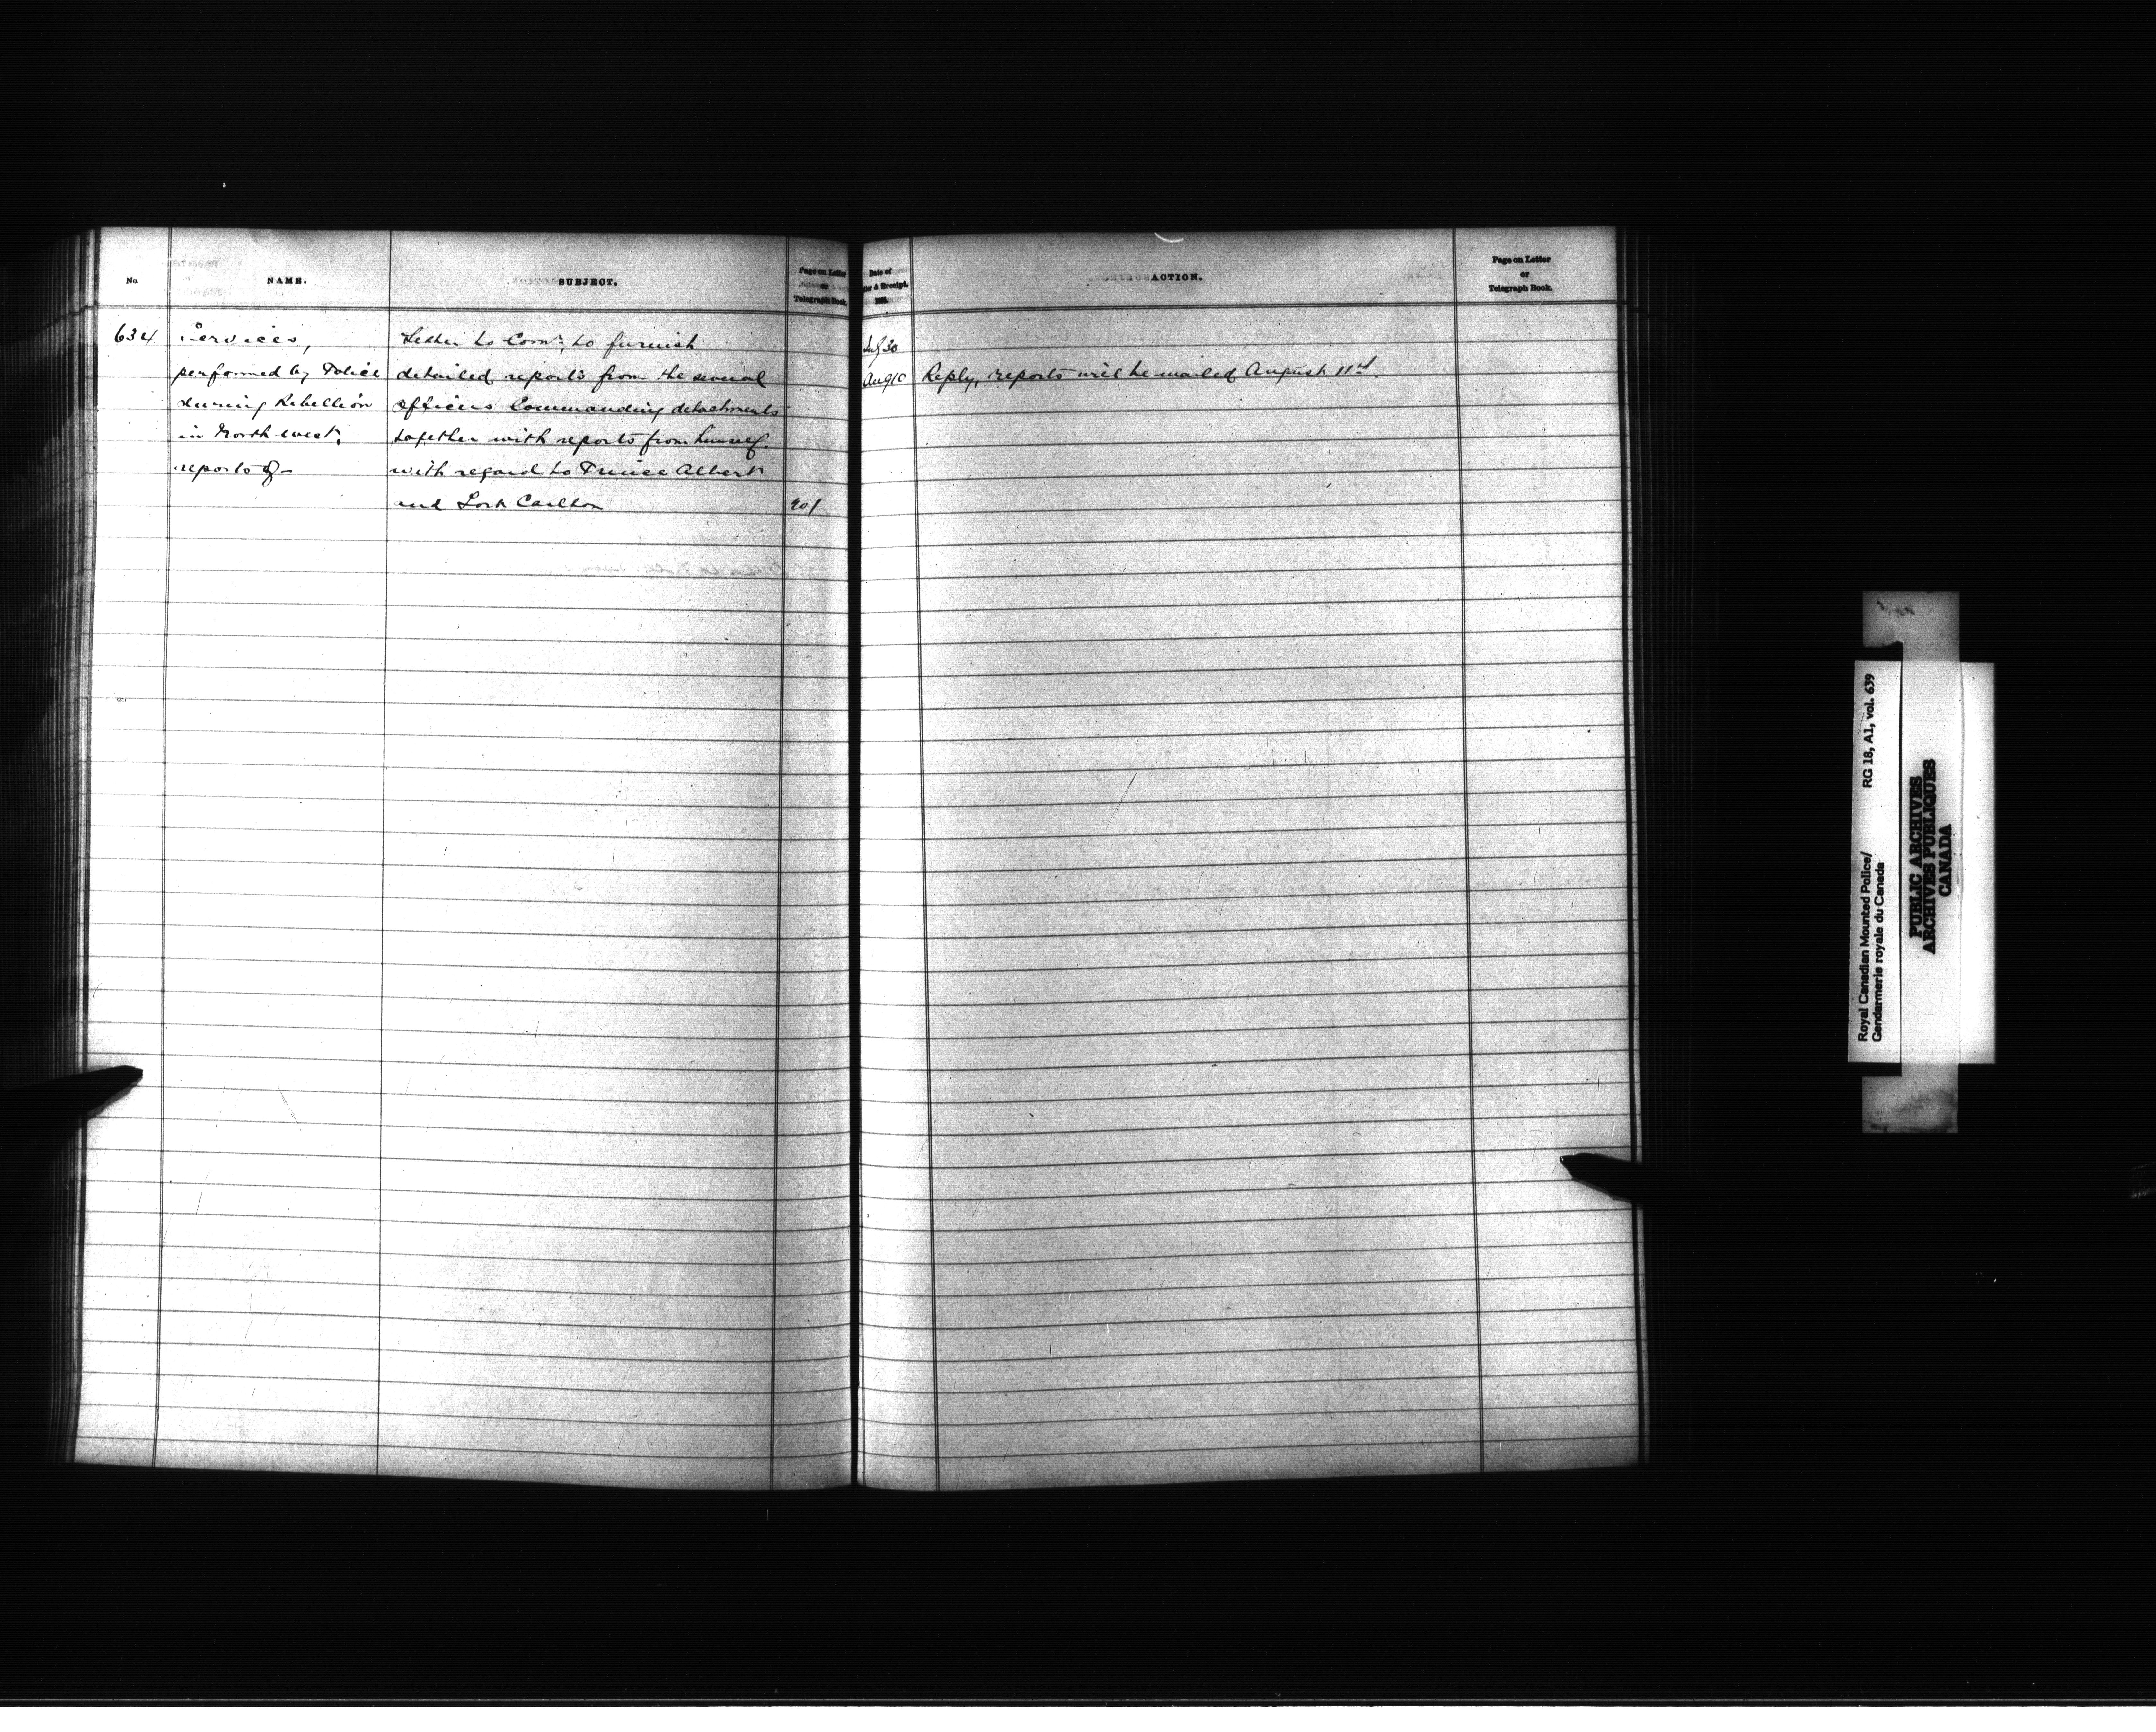 No.
NAME.
SUBJECT.
Page on Letter
or
Telegraph Book.
634
Services,
performed by Police
during Rebellion
in North-west,
reports of-
Letter to Comr. to furnish
detailed reports from the several
officers Commanding detachments
together with reports from himself
with regard to Prince Albert
and Fort Carlton
901
Date of
& Receipt,
ACTION.
Page on Letter
or
Telegraph Book.
July 30
Aug 10 Reply, reports will be mailed August 11
Royal Canadian Mounted Police/ RG 18, A1, vol. 639
Gendarmerie royale du Canada
PUBLIC ARCHIVES
ARCHIVES PUBLIQUES
CANADA